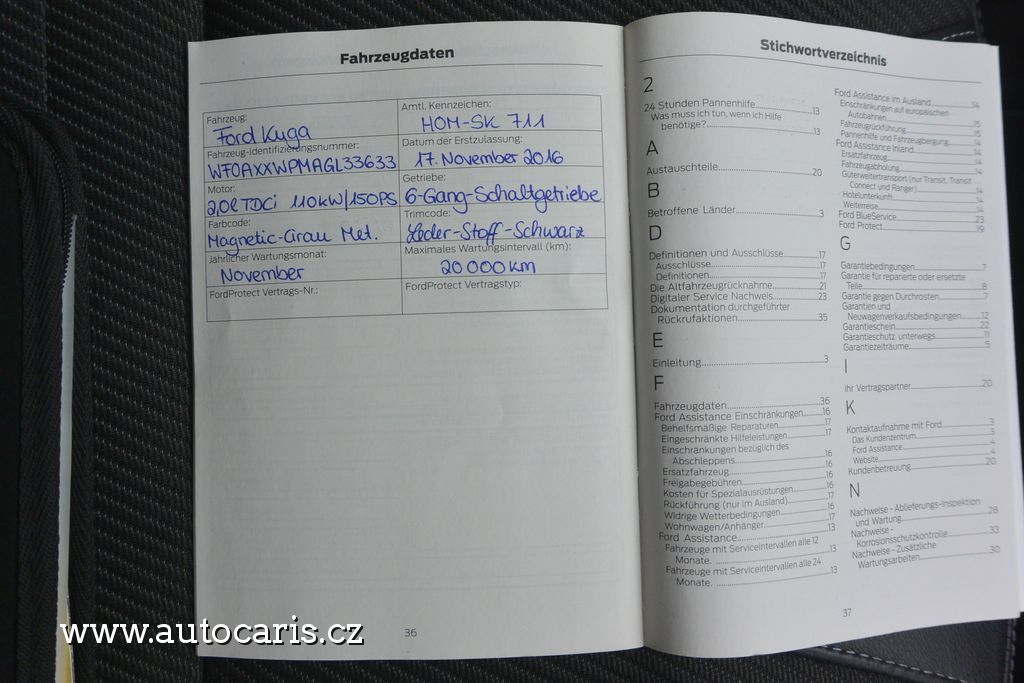 Fahrzeugdaten
Fahrzeug:
Ford Kuga
Amtl. Kennzeichen:
HOM-SK 711
Fahrzeug-Identifizierungsnummer:
WF0AXXWPMAGL33633
Datum der Erstzulassung:
17. November 2016
Motor:
2,0l TDCi 110kW/150PS
Getriebe:
6-Gang-Schaltgetriebe
Farbcode:
Magnetic-Grau Met.
Trimcode:
Leder-Stoff-Schwarz
Jährlicher Wartungsmonat:
November
Maximales Wartungsintervall (km):
20 000 km
FordProtect Vertrags-Nr.:
FordProtect Vertragstyp:
36
Stichwortverzeichnis
2
24 Stunden Pannenhilfe 13
Was muss ich tun, wenn ich Hilfe
benötige? 13
A
Austauschteile 20
B
Betroffene Länder 3
D
Definitionen und Ausschlüsse 17
Ausschlüsse 17
Definitionen 17
Die Altfahrzeugrücknahme 21
Digitaler Service Nachweis 23
Dokumentation durchgeführter
Rückrufaktionen 35
E
Einleitung 3
F
Fahrzeugdaten 36
Ford Assistance Einschränkungen 16
Behelfsmäßige Reparaturen 17
Eingeschränkte Hilfeleistungen 17
Einschränkungen bezüglich des
Abschleppens 16
Ersatzfahrzeug 16
Freigabegebühren 16
Kosten für Spezialausrüstungen 16
Rückführung (nur im Ausland) 17
Widrige Wetterbedingungen 16
Wohnwagen/Anhänger 17
Ford Assistance 13
Fahrzeuge mit Serviceintervallen alle 12
Monate. 13
Fahrzeuge mit Serviceintervallen alle 24
Monate. 13
Ford Assistance im Ausland 14
Einschränkungen auf europäischen
Autobahnen 15
Fahrzeugrückführung 15
Pannenhilfe und Fahrzeugbergung 14
Ford Assistance Inland 14
Ersatzfahrzeug 14
Fahrzeugabholung 14
Güterweitertransport (nur Transit, Transit
Connect und Ranger) 14
Hotelunterkunft 14
Weiterreise 14
Ford BlueService 23
Ford Protect 19
G
Garantiebedingungen 7
Garantie für reparierte oder ersetzte
Teile 8
Garantie gegen Durchrosten 7
Garantien und
Neuwagenverkaufsbedingungen 12
Garantieschein 22
Garantieschutz unterwegs 11
Garantiezeiträume 5
I
Ihr Vertragspartner 20
K
Kontaktaufnahme mit Ford 3
Das Kundenzentrum 3
Ford Assistance 4
Website 4
Kundenbetreuung 20
N
Nachweise - Ablieferungs-Inspektion
und Wartung 28
Nachweise -
Korrosionsschutzkontrolle 33
Nachweise - Zusätzliche
Wartungsarbeiten 30
37
www.autocaris.cz